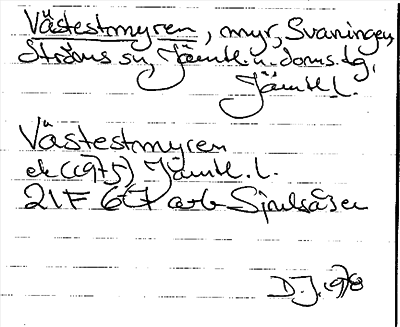 Västestmyren, myr, Svaningen,
Ströms sn, Jämtl. n. doms.tg,
Jämtl.l.
Västestmyren
ek (1975) Jämtl. l.
21F 6-7 a-b Sjoulsåsen
D.J. 1978